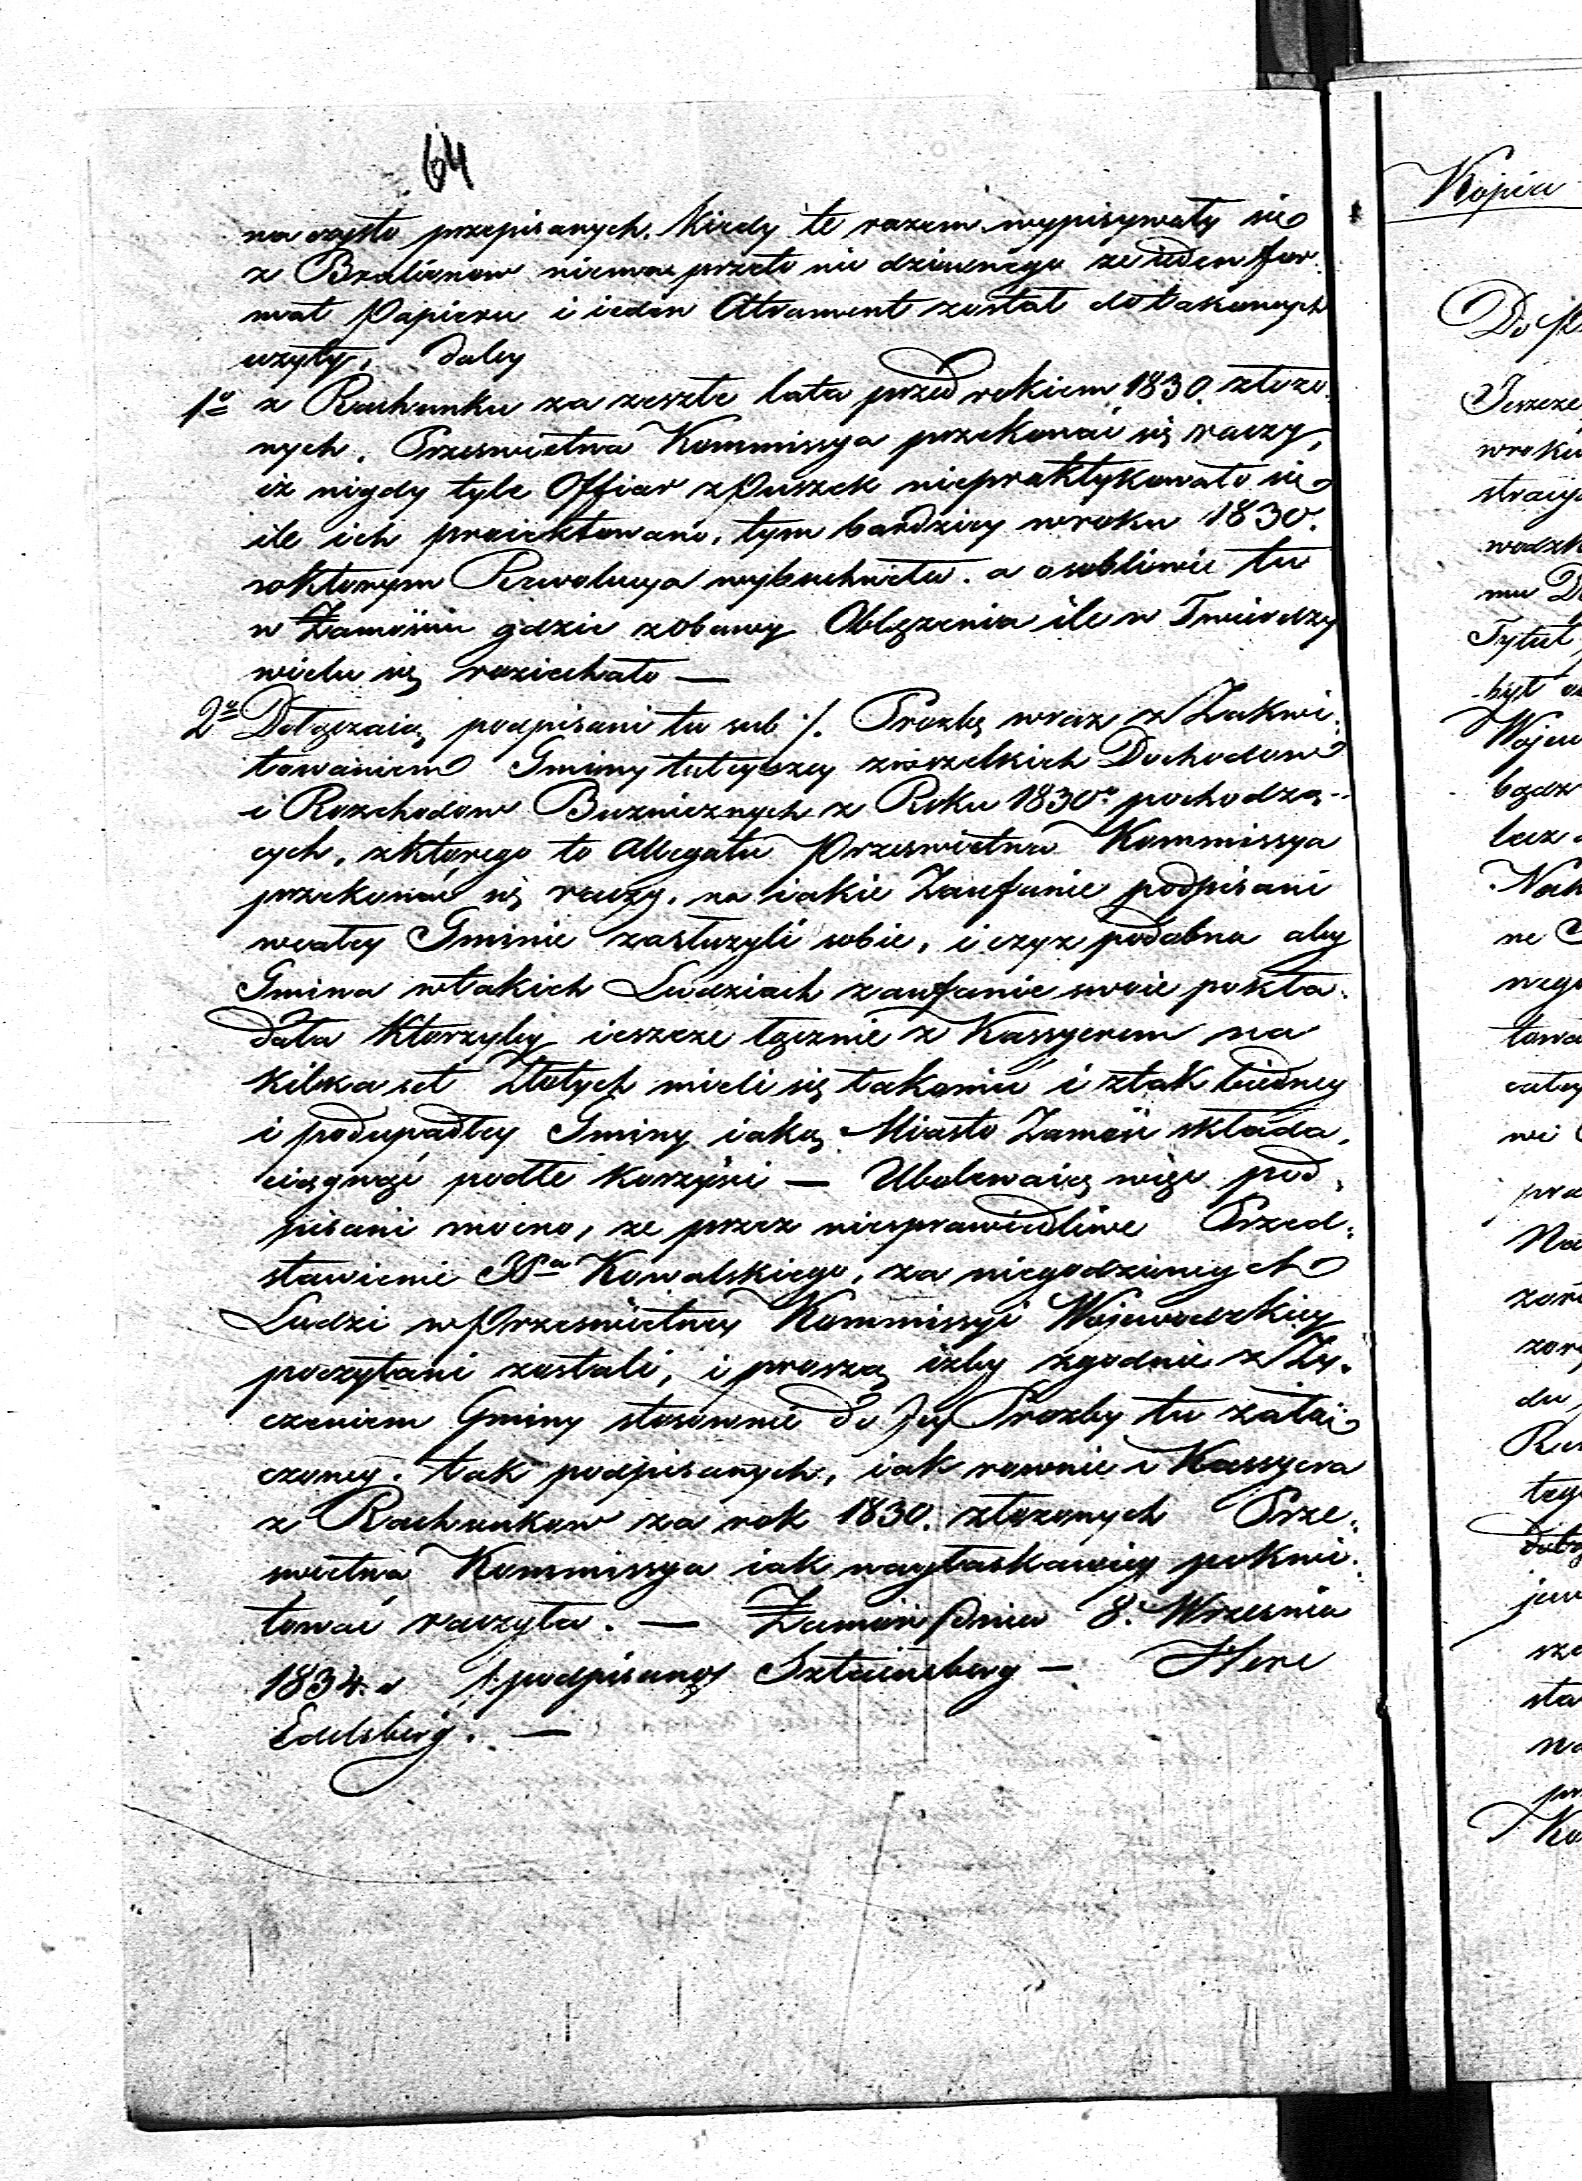 64
na czysto przepisanych. Kiedy te razem wypisywały się
z Brulionow niema przeto nic dziwnego ze ieden for
mat Papieru i ieden Atrament został do takowych
uzyty, daley
1o z Rachunku za zeszłe lata przed rokiem 1830. złozo
nych. Prześwietna Kommissya przekonać się raczy,
iż nigdy tyle Offiar z Puszek niepraktykowało się
ile ich proiektowano, tym bardziey w roku 1830.
w ktorym Rewolucya wybuchneła. a osobliwie tu
w Zamościu gdzie z obawy Oblężenia ile w Twierdzy
wielu się roziechało —
2o Dołączaią podpisani tu sub ·/. Prozbę wraz z Zakwi
towaniem Gminy tuteyszey z wszelkich Dochodow
i Rozchodow Buzniczych z Roku 1830o pochodzą-
cych, z ktorego to Allegatu Prześwietna Kommissya
przekonać się raczy, na iakie Zaufanie podpisani
w całey Gminie zasłuzyli sobie, i czyz podobna aby
Gmina w takich Ludziach zaufanie swoie pokła-
dała ktorzyby ieszcze łącznie z Kassyerem na
kilka set Złotych mieli się łakomić i z tak biedney
i podupadłey Gminy iaką Miasto Zamość składa,
ciągnąć podłe korzyści — Ubolewaiąc więc pod,
pisani mocno, ze przez niesprawiedliwe Przed-
stawienie Kowalskiego, za niegodziwych
Ludzi w Prześwietney Kommissyi Wojewodzkiey
poczytani zostali, i proszą izby zgodnie z Zy-
czeniem Gminy stosownie do Jey Prozby tu załą
czoney. tak podpisanych, iak rownie i Kassyera
z Rachunkow za rok 1830. złozonych Prze-
świetna Kommissya iak nayłaskawiey pokwi
tować raczyła. — Zamość Dnia 8. Września
1834. podpisano Sztainsberg — Herc
Edelsberg. —
Kopia
Do
Jeszcze
w roku
Tytuł
był
Wojew
bądz
lecz
ne